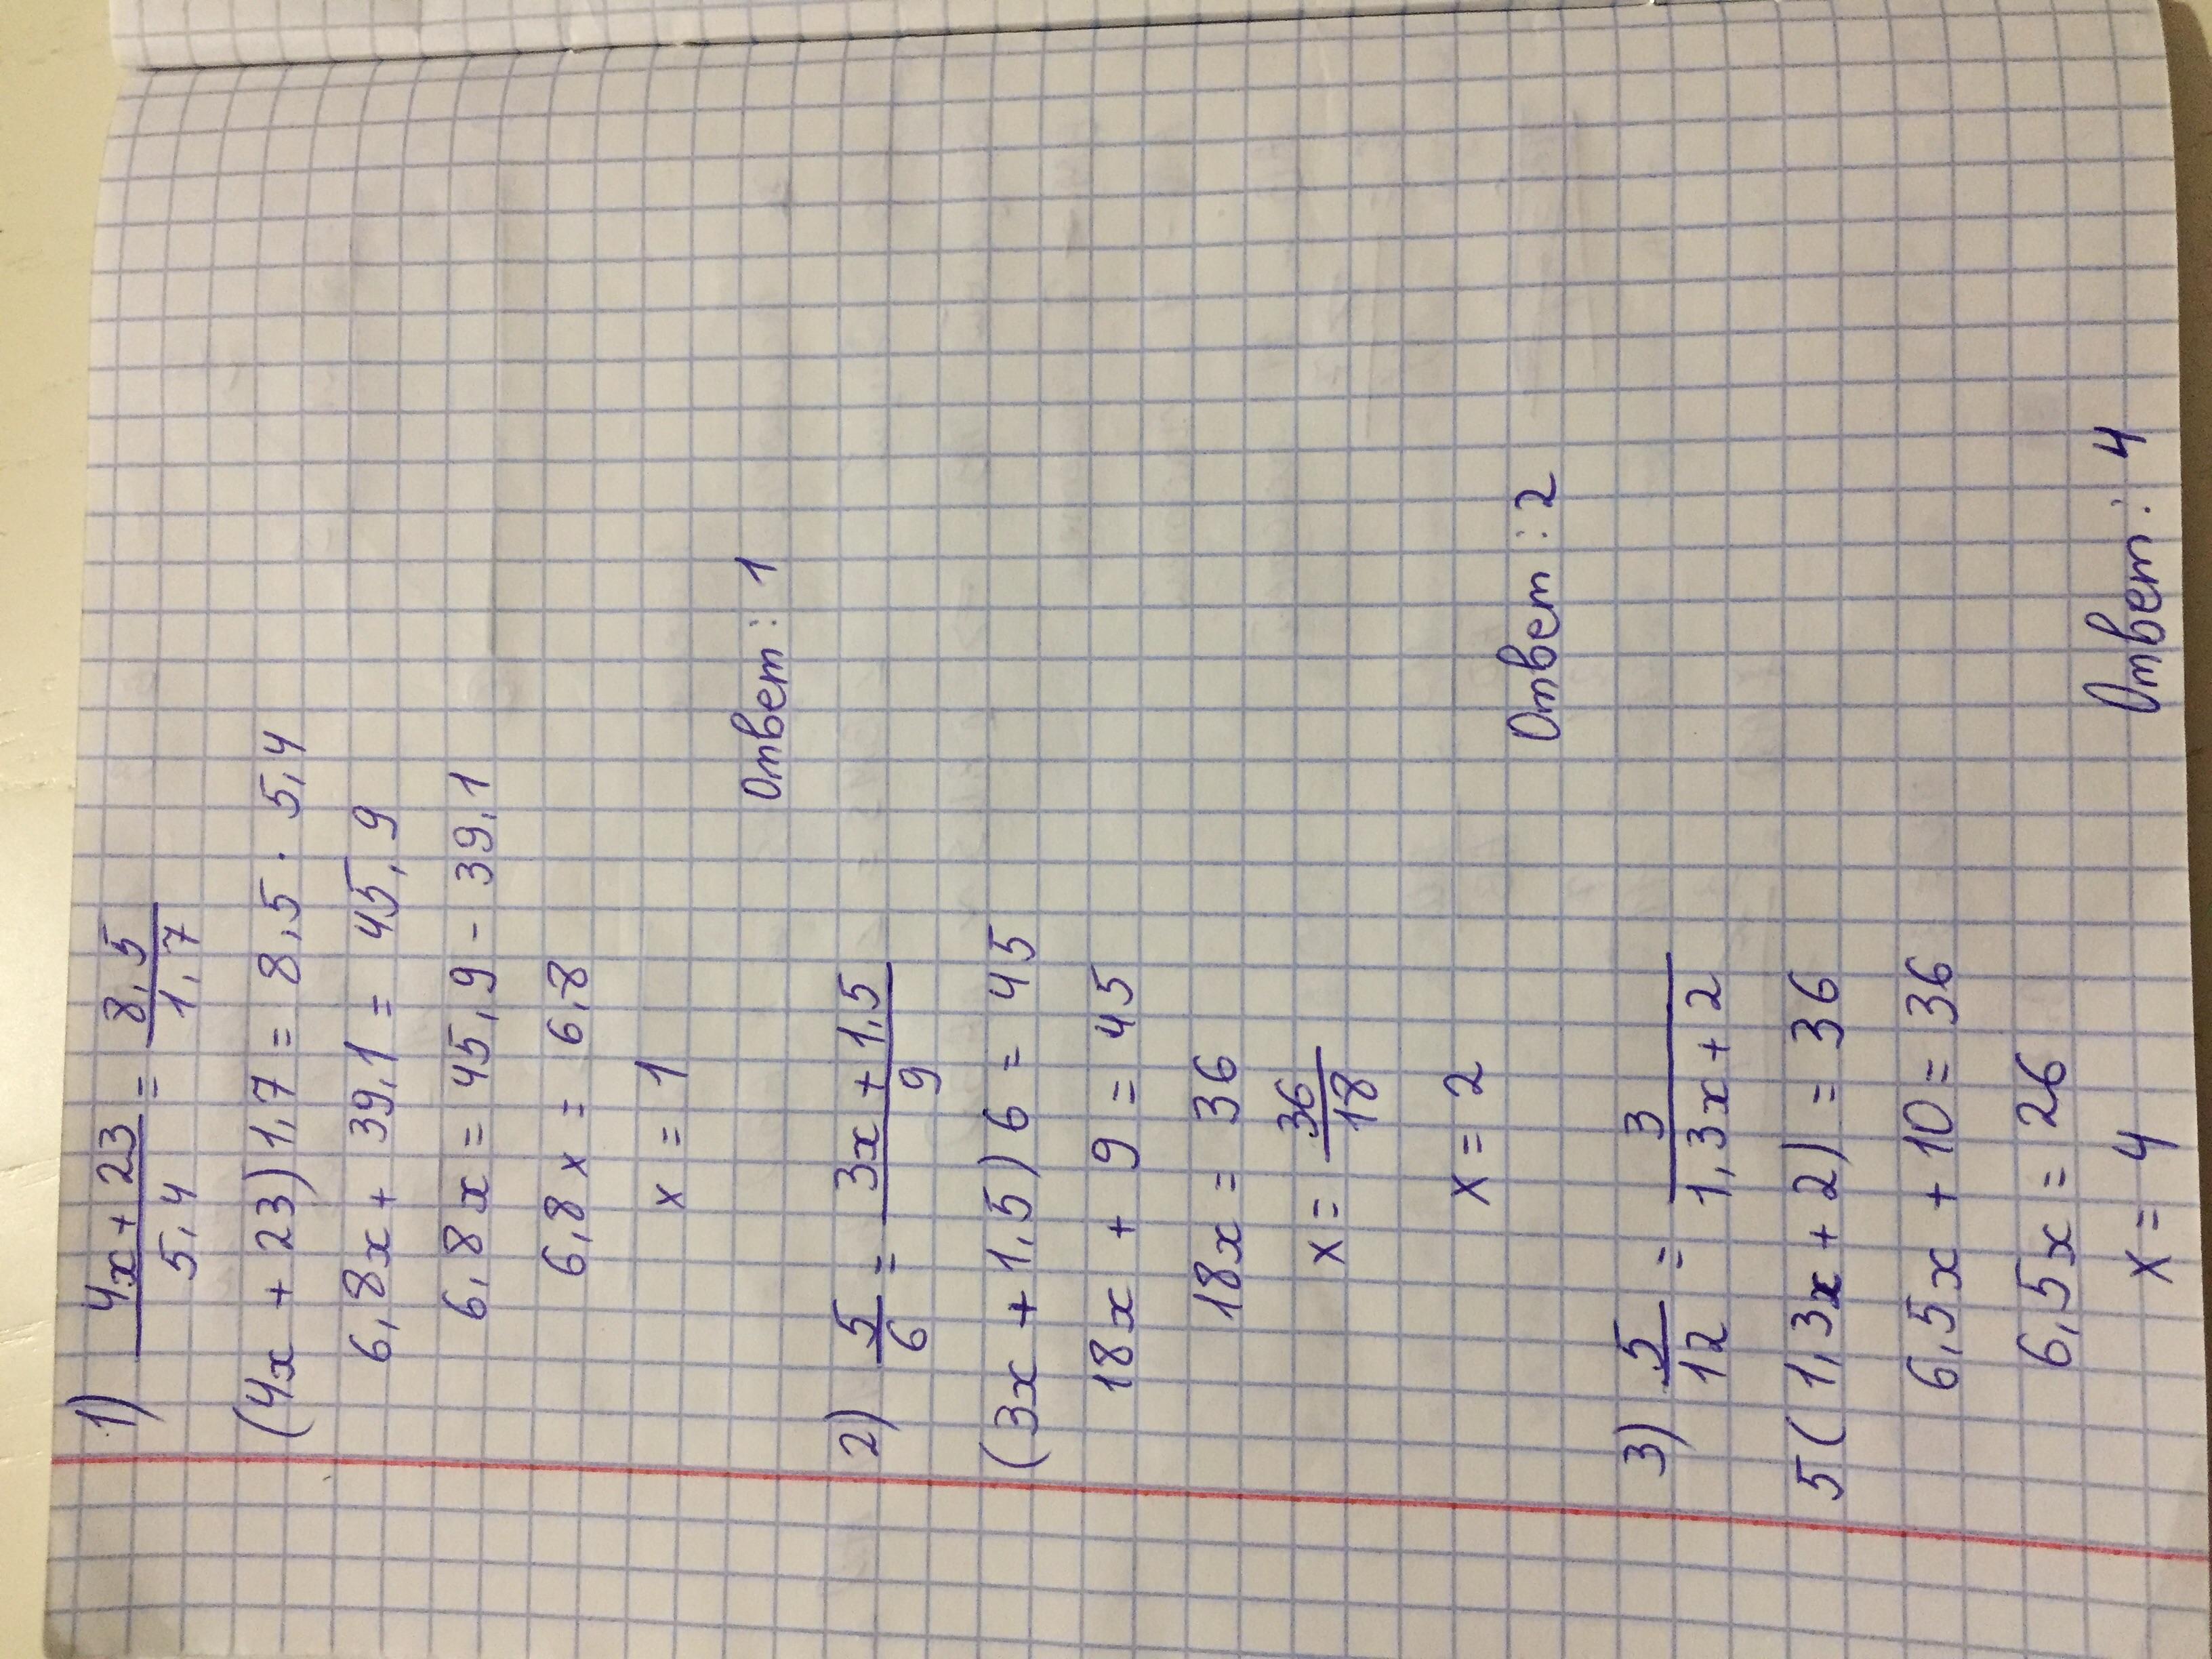 1) (4x + 23)/5,4 = 8,5/1,7
(4x + 23) 1,7 = 8,5 · 5,4
6,8x + 39,1 = 45,9
6,8x = 45,9 - 39,1
6,8x = 6,8
x = 1
Ответ: 1
2) 5/6 = (3x + 1,5)/9
(3x + 1,5) 6 = 45
18x + 9 = 45
18x = 36
x = 36/18
x = 2
Ответ: 2
3) 5/12 = 3/(1,3x + 2)
5(1,3x + 2) = 36
6,5x + 10 = 36
6,5x = 26
x = 4
Ответ: 4